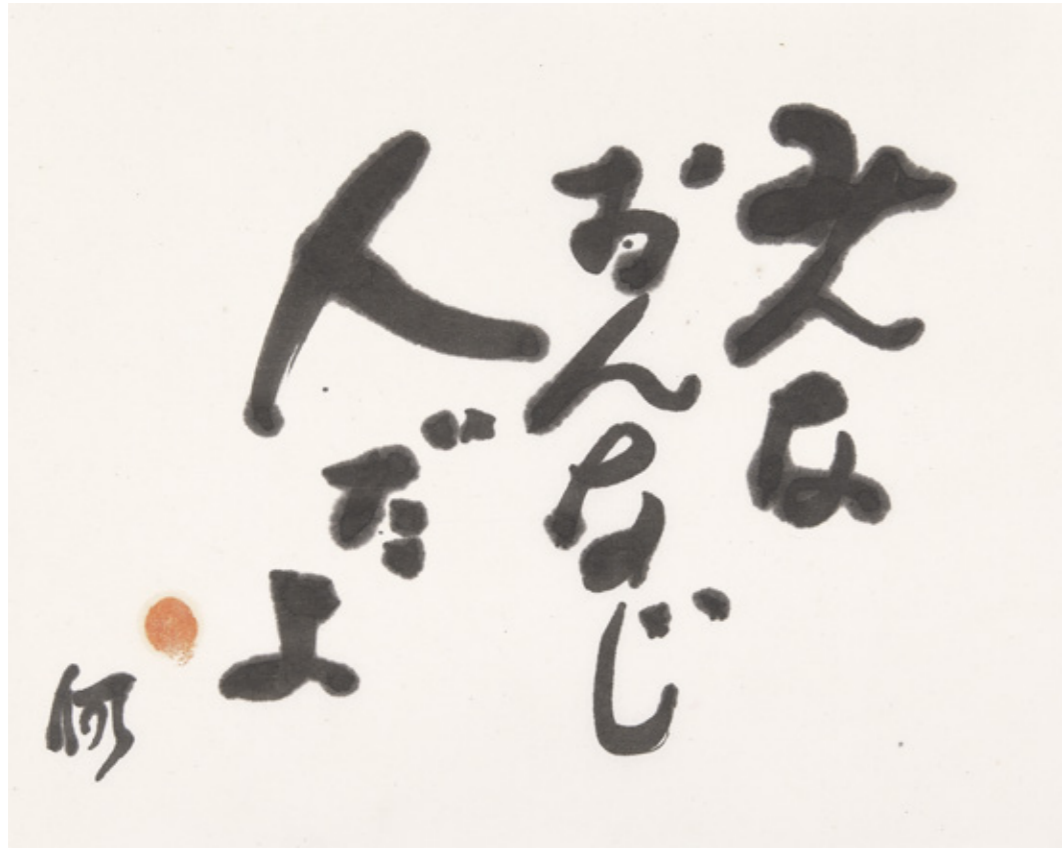 みんな
おんなじ
人だよ
何